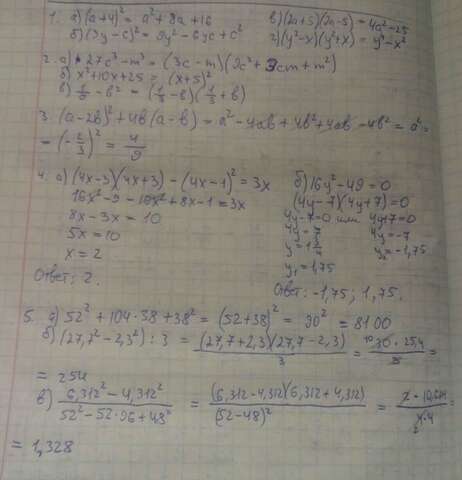 1. а) (a+4)² = a²+8a+16 в) (2a+5)(2a-5) = 4a²-25
б) (3y-c)² = 9y²-6yc+c² г) (y²-x)(y²+x) = y⁴-x²
2. а) 27c³-m³ = (3c-m)(9c²+3cm+m²)
б) x²+10x+25 = (x+5)²
в) 1/9-b² = (1/3-b)(1/3+b)
3. (a-2b)²+4b(a-b) = a²-4ab+4b²+4ab-4b² = a² =
= (-2/3)² = 4/9
4. а) (4x-3)(4x+3)-(4x-1)² = 3x б) 16y²-49=0
16x²-9-16x²+8x-1=3x (4y-7)(4y+7)=0
8x-3x=10 4y-7=0 или 4y+7=0
5x=10 4y=7 4y=-7
x=2 y=1 3/4 y₂=-1,75
y₁=1,75
Ответ: 2. Ответ: -1,75; 1,75.
5. а) 52²+104·38+38² = (52+38)² = 90² = 8100
б) (27,7²-2,3²):3 = (27,7+2,3)(27,7-2,3)/3 = 30·25,4/3 =
= 254
в) 6,312²-4,312²/52²-52·96+48² = (6,312-4,312)(6,312+4,312)/(52-48)² = 2·10,624/4·4
= 1,328